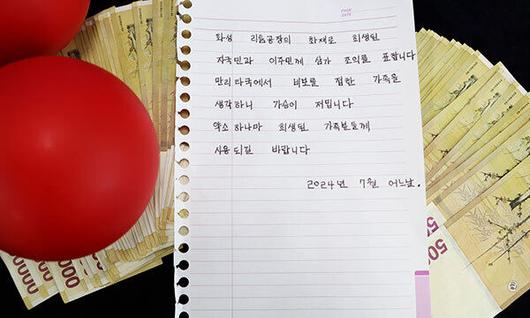 화성 리튬공장의 화재로 희생된
자국민과 이주민께 삼가 조의를 표합니다
만리타국에서 비보를 접한 가족을
생각하니 가슴이 저밉니다
약소하나마 희생된 가족분들께
사용되길 바랍니다
2024년 7월 어느날.